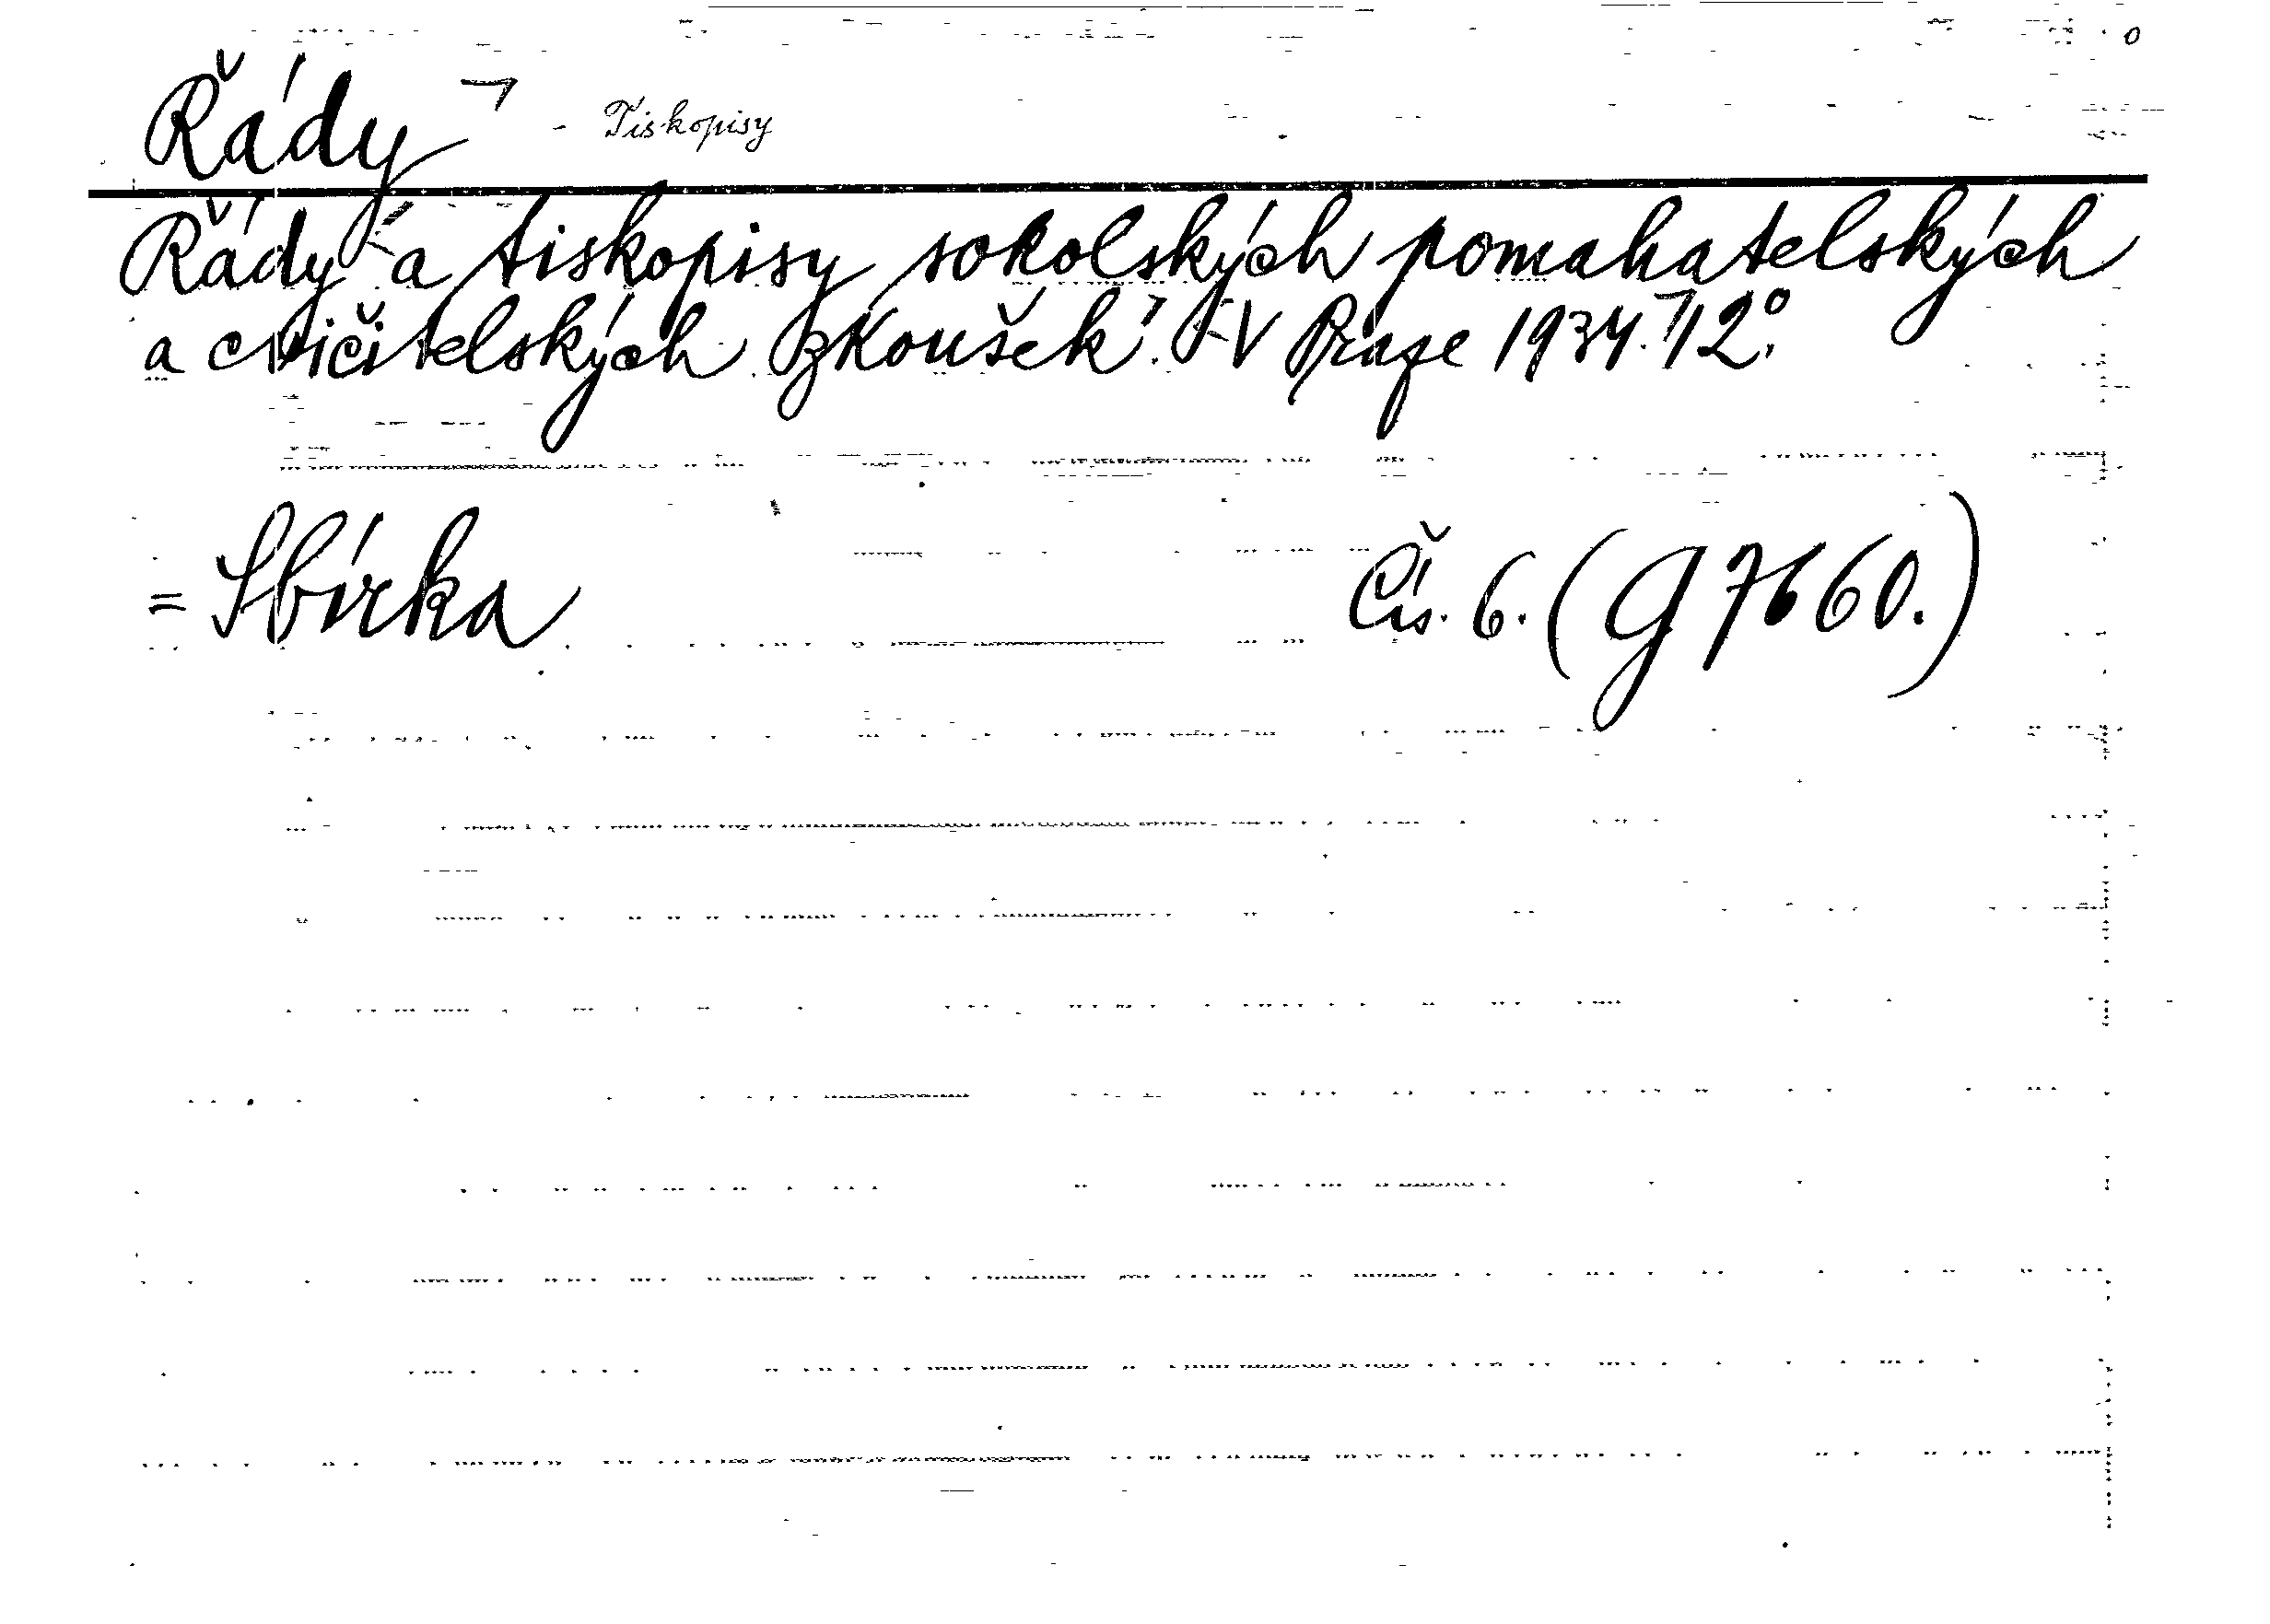 Řády - Tiskopisy
Řády a tiskopisy sokolských pomahatelských
a cvičitelských zkoušek. - V Praze 1934. 12°.
= Sbírka Čís. 6. (G 7660.)